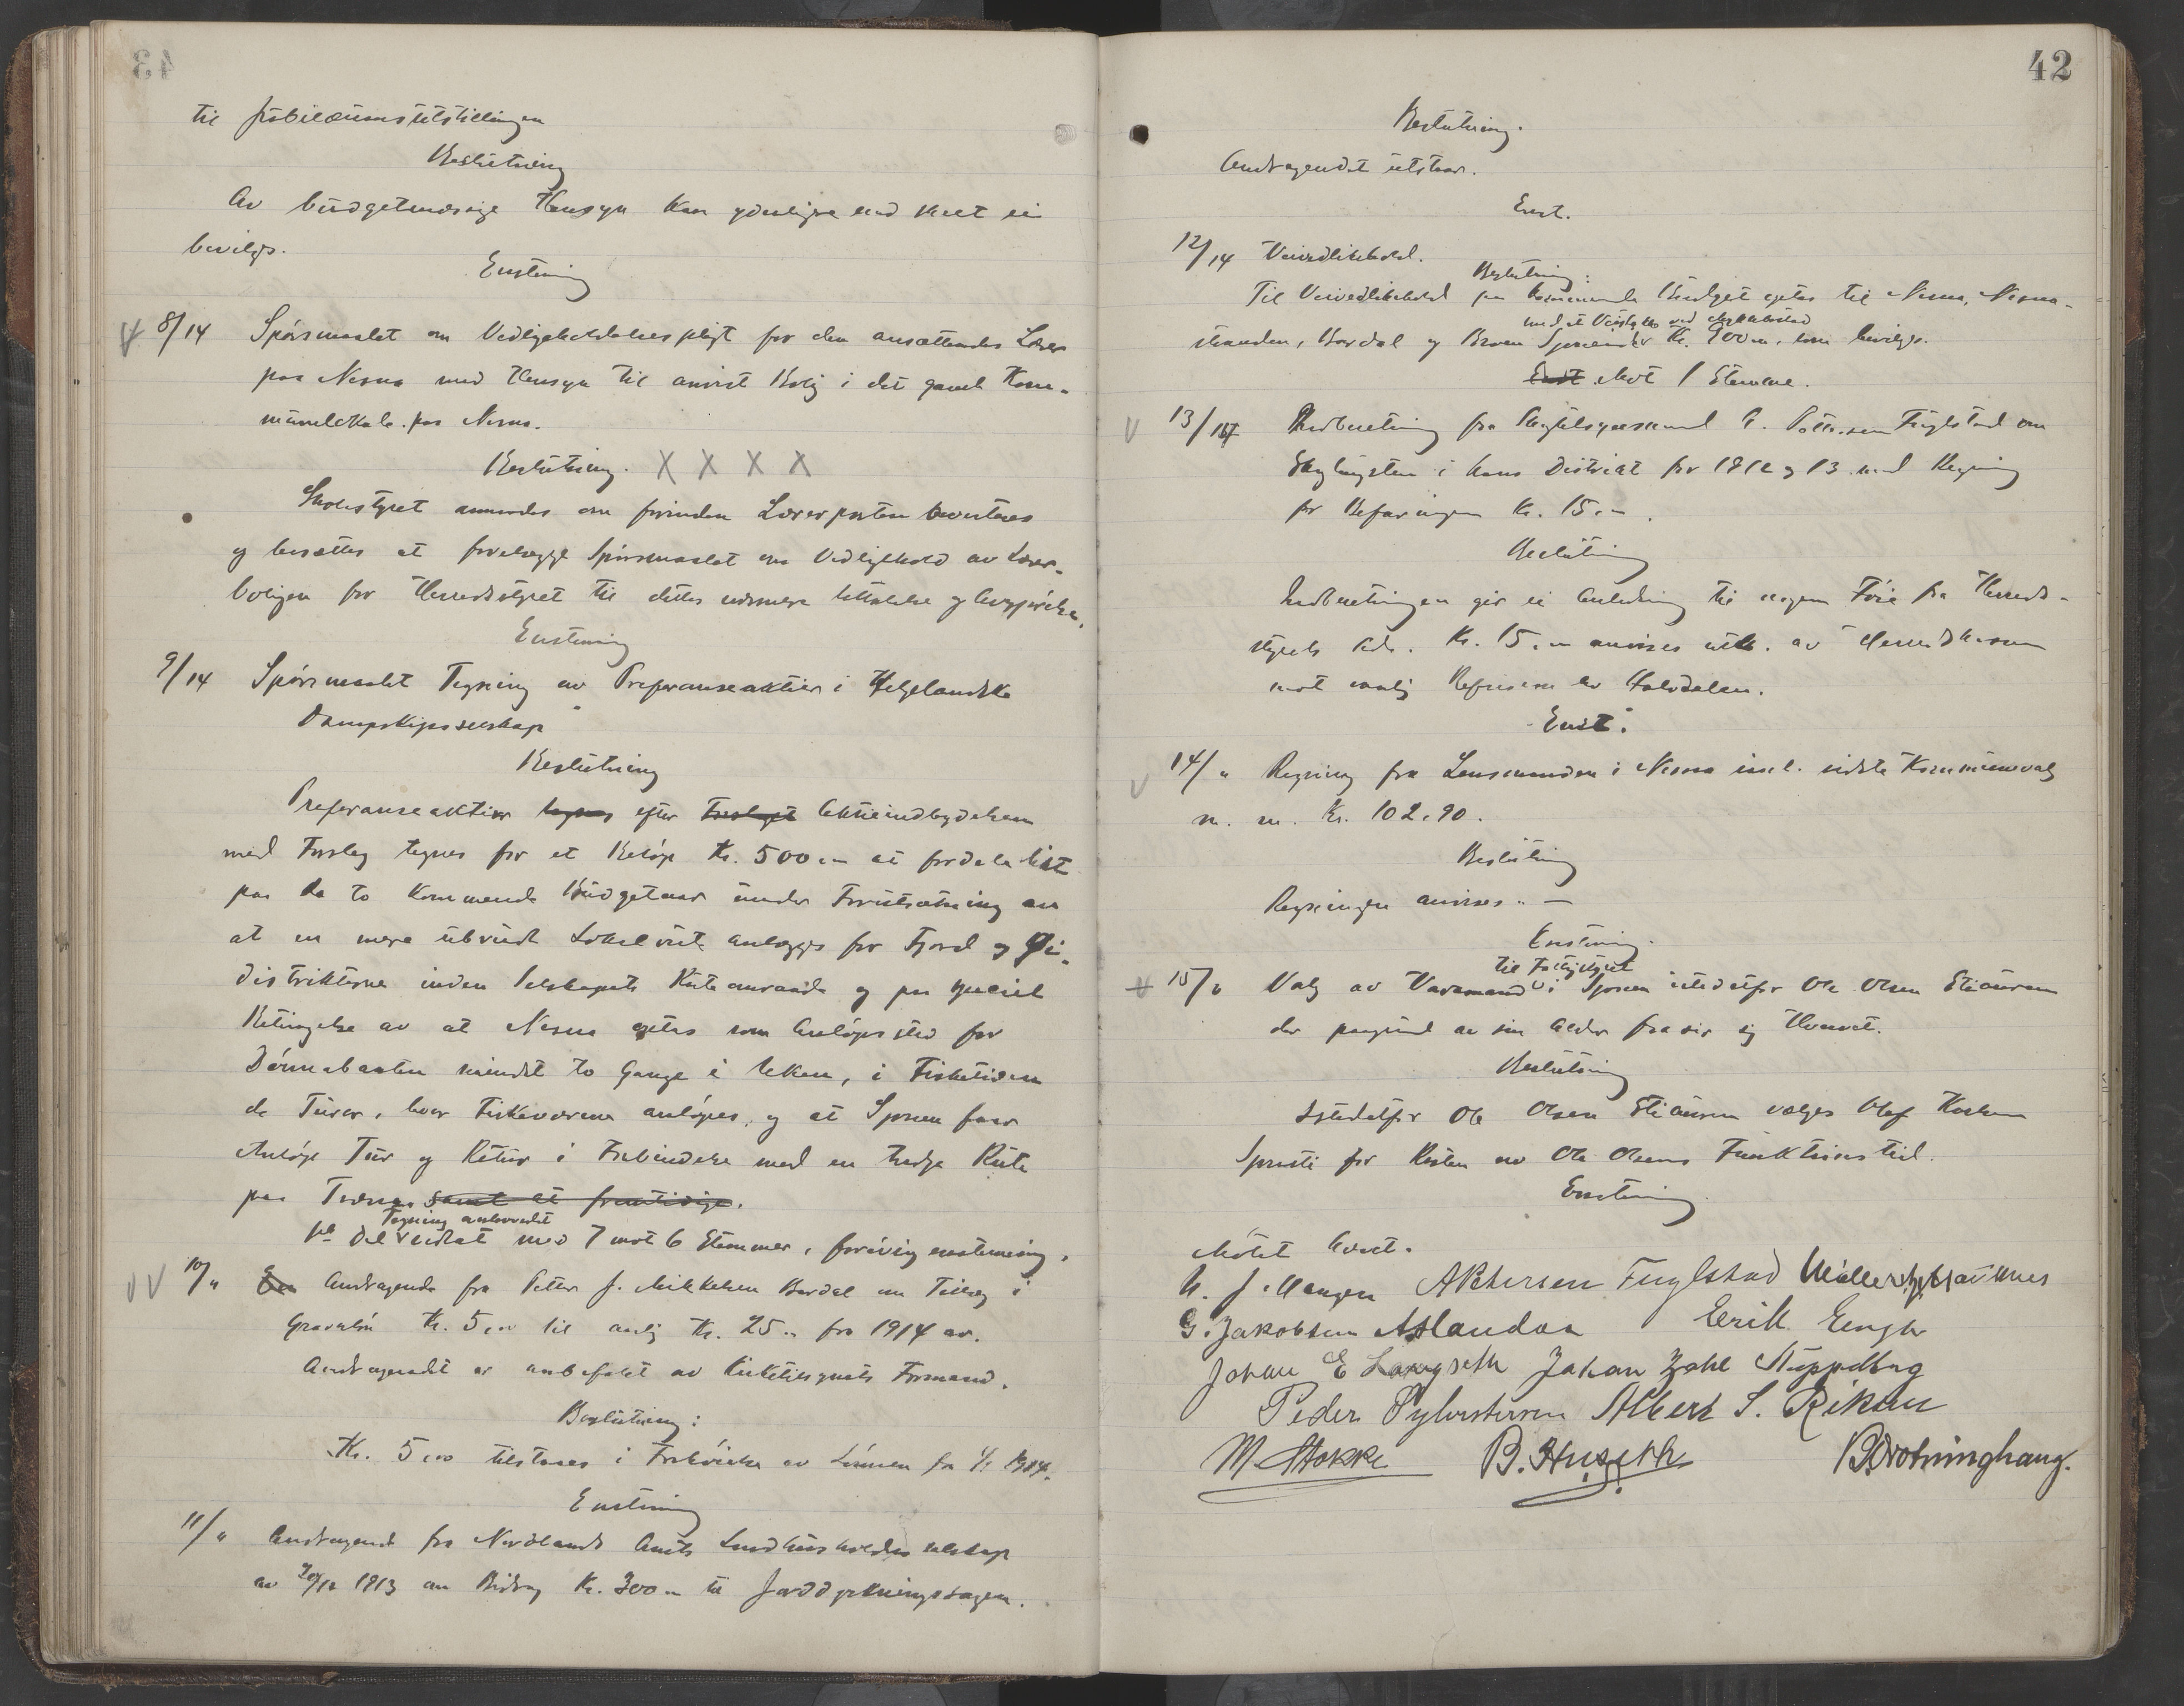 til Jubilæumsutstillingen
Beslutning
Av budgetmæssige Hensyn kan yderligere end skeet ei
bevilges.
Enstemmig
8/14 Spörsmaalet om Vedligeholdelsespligt for den ansættendes Lærer
paa Nesna med Hensyn til anvist Bolig i det gamle Kom-
munelokale paa Nesna.
Beslutning. X X X X
Skolestyret anmodes om forinden Lærerposten
og besættes at forelægge Spörsmaalet om Vedligehold av Lærer-
boligen for Herredsstyret til dettes nærmere Uttalelse og Avgjörelse.
Enstemmig
9/14 Spörsmaalet Tegning av Preferanseaktier i Helgelandske
Dampskipsselskap
Beslutning
Preferanseaktier tegnes efter Forslaget Aktieindbydelsen
med Forslag tegnes for et Belöp Kr. 500,- at fordele likt
paa de to kommende Budgetaar under Forutsætning av
at en mere utvidet Lokalrute anlægges for Fjord og Öi-
distrikterne inden Selskapets Ruteomraade og paa speciel
Betingelse av at Nesna sættes som Anlöpssted for
Dönnabaaten mindst to Gange i Uken, i Fisketiden
de Turer, hvor Fiskeværene anlöpes, og at Sjonen faar
Anlöp Tur og Retur i Forbindelse med en tredje Rute
paa Tværnes samt at fremtidige.
Tegning anbovedet
vedtat med 7 mot 6 Stemmer, forövrig enstemmig.
10/" Andragende fra Petter J. Mikkelsen Bardal om Tillæg i
Graverlön Kr. 5,00 til aarlig Kr. 25,- fra 1914 av.
Andragendet er anbefalet av Kirketilsynets Formand.
Beslutning:
Kr. 5,00 tilstaaes i Forhöielse av Lönnen fra 1/1 1914.
Enstemmig
11/" Andragende fra Nordlands Amts Landhusholdningsselskap
av 30/12 1913 om Bidrag Kr. 300,- til Jorddyrkningssagen.
42
Beslutning.
Andragendet utstaar.
Enst.
12/14 Veivedlikehold.
Beslutning:
Til Veivedlikehold paa kommende Budget opføres til Nesna, Nesna-
med et Veistykke ved
stranden, Bardal og Sjonen Kr. 900,-, som bevilges.
Enst. Mot 1 Stemme.
13/14 Indberetning fra Skogtilsynsmand A. Pettersen Fuglstad om
Skoghugsten i hans Distrikt for 1912 og 13 med Regning
for Befaringen Kr. 15,-.
Beslutning
Indberetningen gir ei Anledning til nogen Föie fra Herreds-
styrets Side. Kr. 15,- anvises utb. av Herredskassen
mot vanlig Refusion av Halvdelen.
Enst.
14/" Regning fra Lensmanden i Nesna sidste Kommunevalg
m. m. Kr. 102,90.
Beslutning
Regningen anvises. —
Enstemmig.
til Fattigstyret
15/" Valg av Varamand i Sjonen istedetfor Ole Olsen Stiauren
der paagrund av sin Alder frasier sig Hvervet.
Beslutning
Istedetfor Ole Olsen Stiauren vælges Olaf
for Resten av Ole Olsens Funktionstid.
Enstemmig
Mötet hævet.
A Pettersen Fuglstad
G. Jakobsen A Handaa Erik Enger
Johan E Langseth Johan Zahl Stuppelberg
Peder Sylvestersen Albert S. Rikan
M. Stokke B. Huseth B. Dronninghaug.